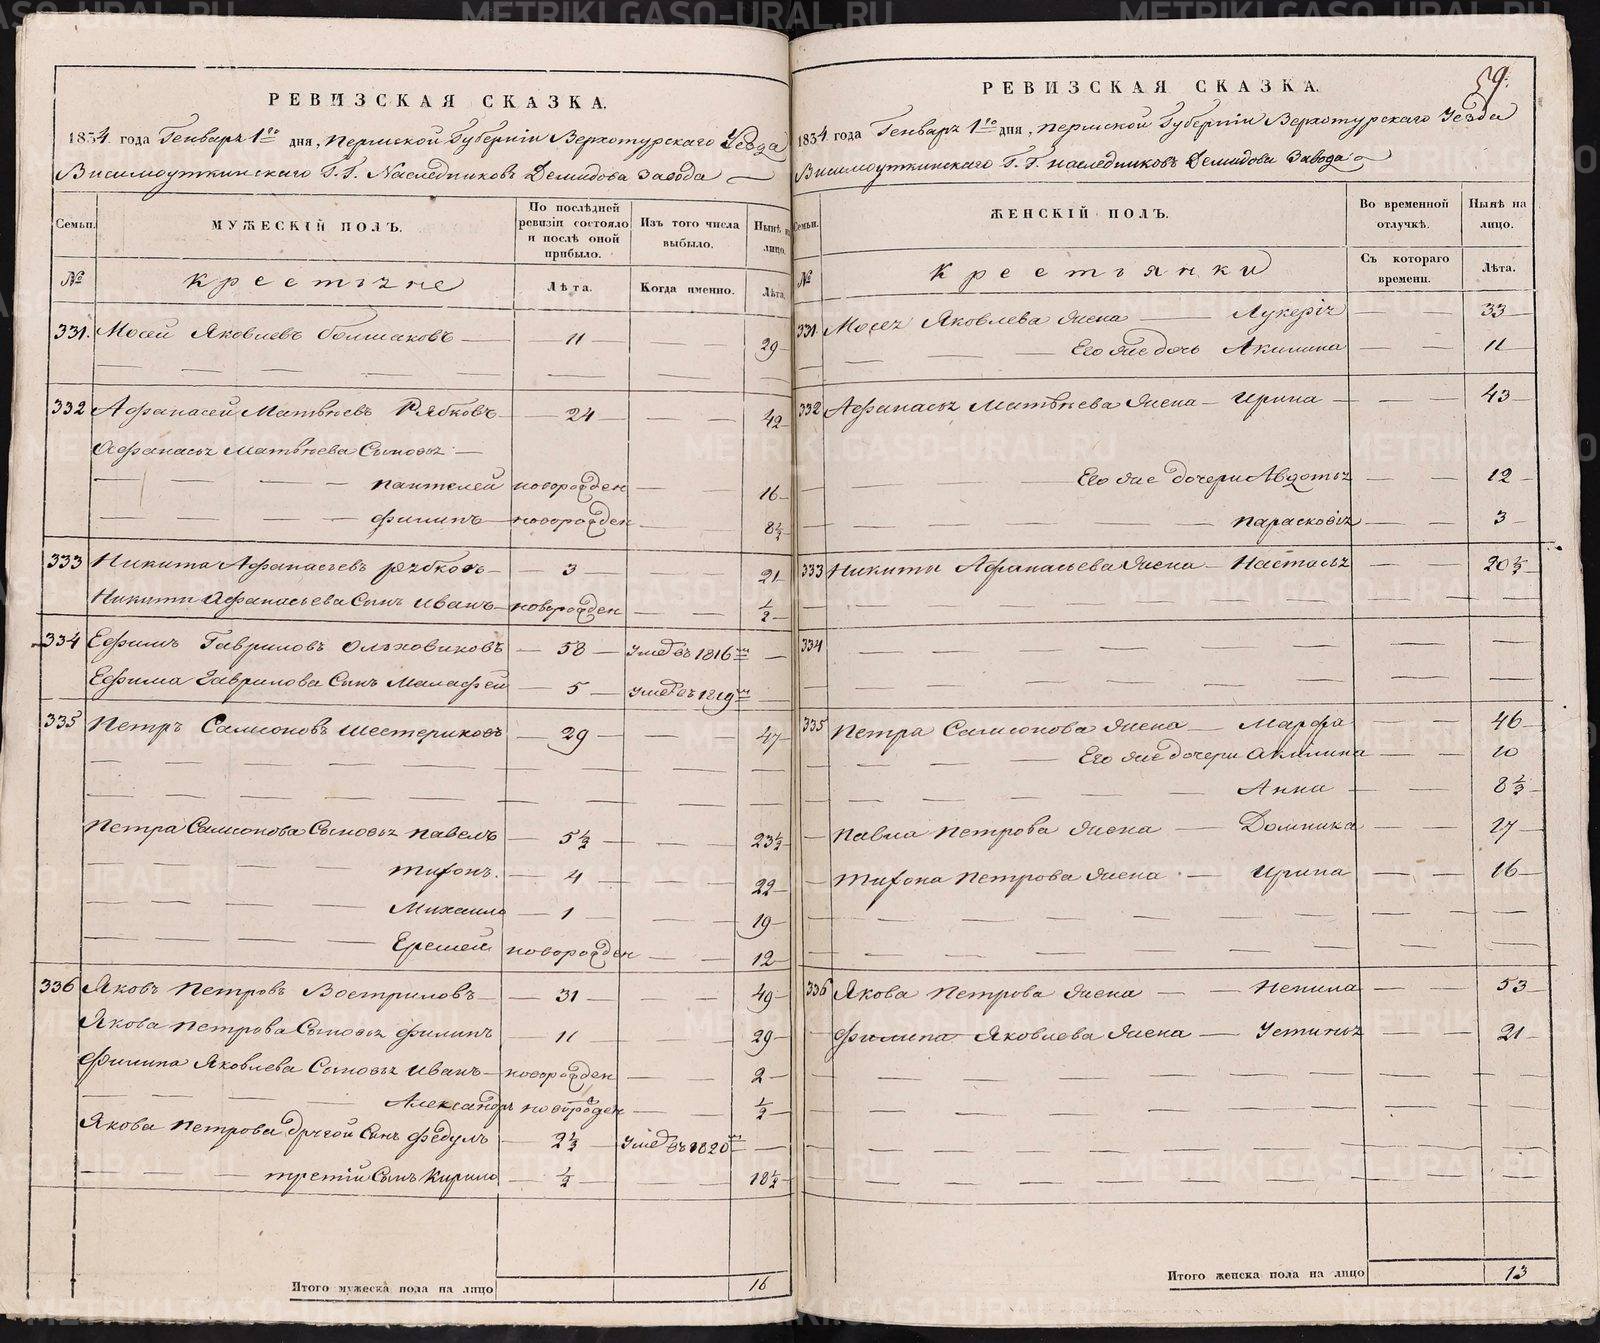 РЕВИЗСКАЯ СКАЗКА.
1834 года Генваря 1го дня, Пермской Губернiи Верхотурскаго Уезда
Висимоуткинскаго Г.Г. Наследниковъ Демидова Завода
Семьи. МУЖЕСКІЙ ПОЛЪ. По послѣдней ревизіи состояло и послѣ оной прибыло. Изъ того числа выбыло. Нынѣ на лицо.
№ Крестьяне Лѣта. Когда именно. Лѣта.
331. Мосей Яковлевъ Болшаковъ 11 29
332 Афанасей Матвѣевъ Рябковъ 24 42
Афанасья Матвѣева Сыновья:
Пантелей новорожден 16
Филипъ новорожден 8½
333 Никита Афанасьевъ Рябковъ 3 21
Никиты Афанасьева Сынъ Иванъ новорожден ½
334 Ефимъ Гавриловъ Ольховиковъ 58 Умеръ въ 1816м
Ефима Гаврилова Сынъ Малафей 5 Умеръ въ 1819м
335 Петръ Самсоновъ Шестериковъ 29 47
Петра Самсонова Сыновья Павелъ 5½ 23½
Тифонъ. 4 22
Михаило 1 19
Еремей новорожден 12
336 Яковъ Петровъ Востриловъ 31 49
Якова Петрова Сыновья Филипъ 11 29
Филипа Яковлева Сыновья Иванъ новорожден 2
Александръ новорожден ½
Якова Петрова другой Сынъ Федулъ 2½ Умеръ въ 1820м
третiй Сынъ Кирило ½ 18½
Итого мужеска пола на лицо 16
59.
РЕВИЗСКАЯ СКАЗКА.
1834 года Генваря 1го дня, Пермской Губернiи Верхотурскаго Уезда
Висимоуткинскаго Г.Г. Наследниковъ Демидова Завода
Семьи. ЖЕНСКІЙ ПОЛЪ. Во временной отлучкѣ. Нынѣ на лицо.
№ Крестьянки Съ котораго времени. Лѣта.
331 Мосея Яковлева жена Лукерiя 33
Его же дочь Акилина 11
332 Афанасья Матвѣева жена Ирина 43
Его же дочери Авдотья 12
Парасковья 3
333 Никиты Афанасьева жена Настасья 20½
334
335 Петра Самсонова жена Марфа 46
Его же дочери Акилина 10
Анна 8½
Павла Петрова жена Домника 27
Тифона Петрова жена Ирина 16
336 Якова Петрова жена Ненила 53
Филипа Яковлева жена Устинья 21
Итого женска пола на лицо 13
METRIKI.GASO-URAL.RU